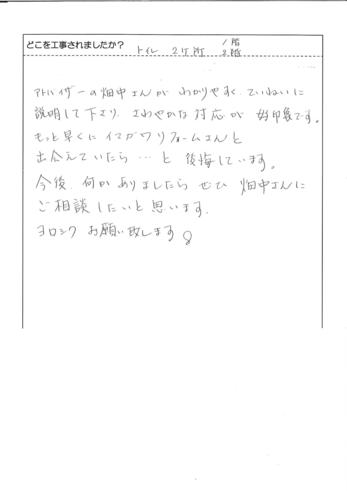 どこを工事されましたか? トイレ 2ケ所 1階 2階
アドバイザーの畑中さんが わかりやすく、ていねいに
説明して下さり、さわやかな対応が 好印象です。
もっと早くに イマガワリフォームさんと
出会えていたら…と 後悔しています。
今後 何かありましたら ぜひ 畑中さんに
ご相談したいと思います。
ヨロシク お願い致します